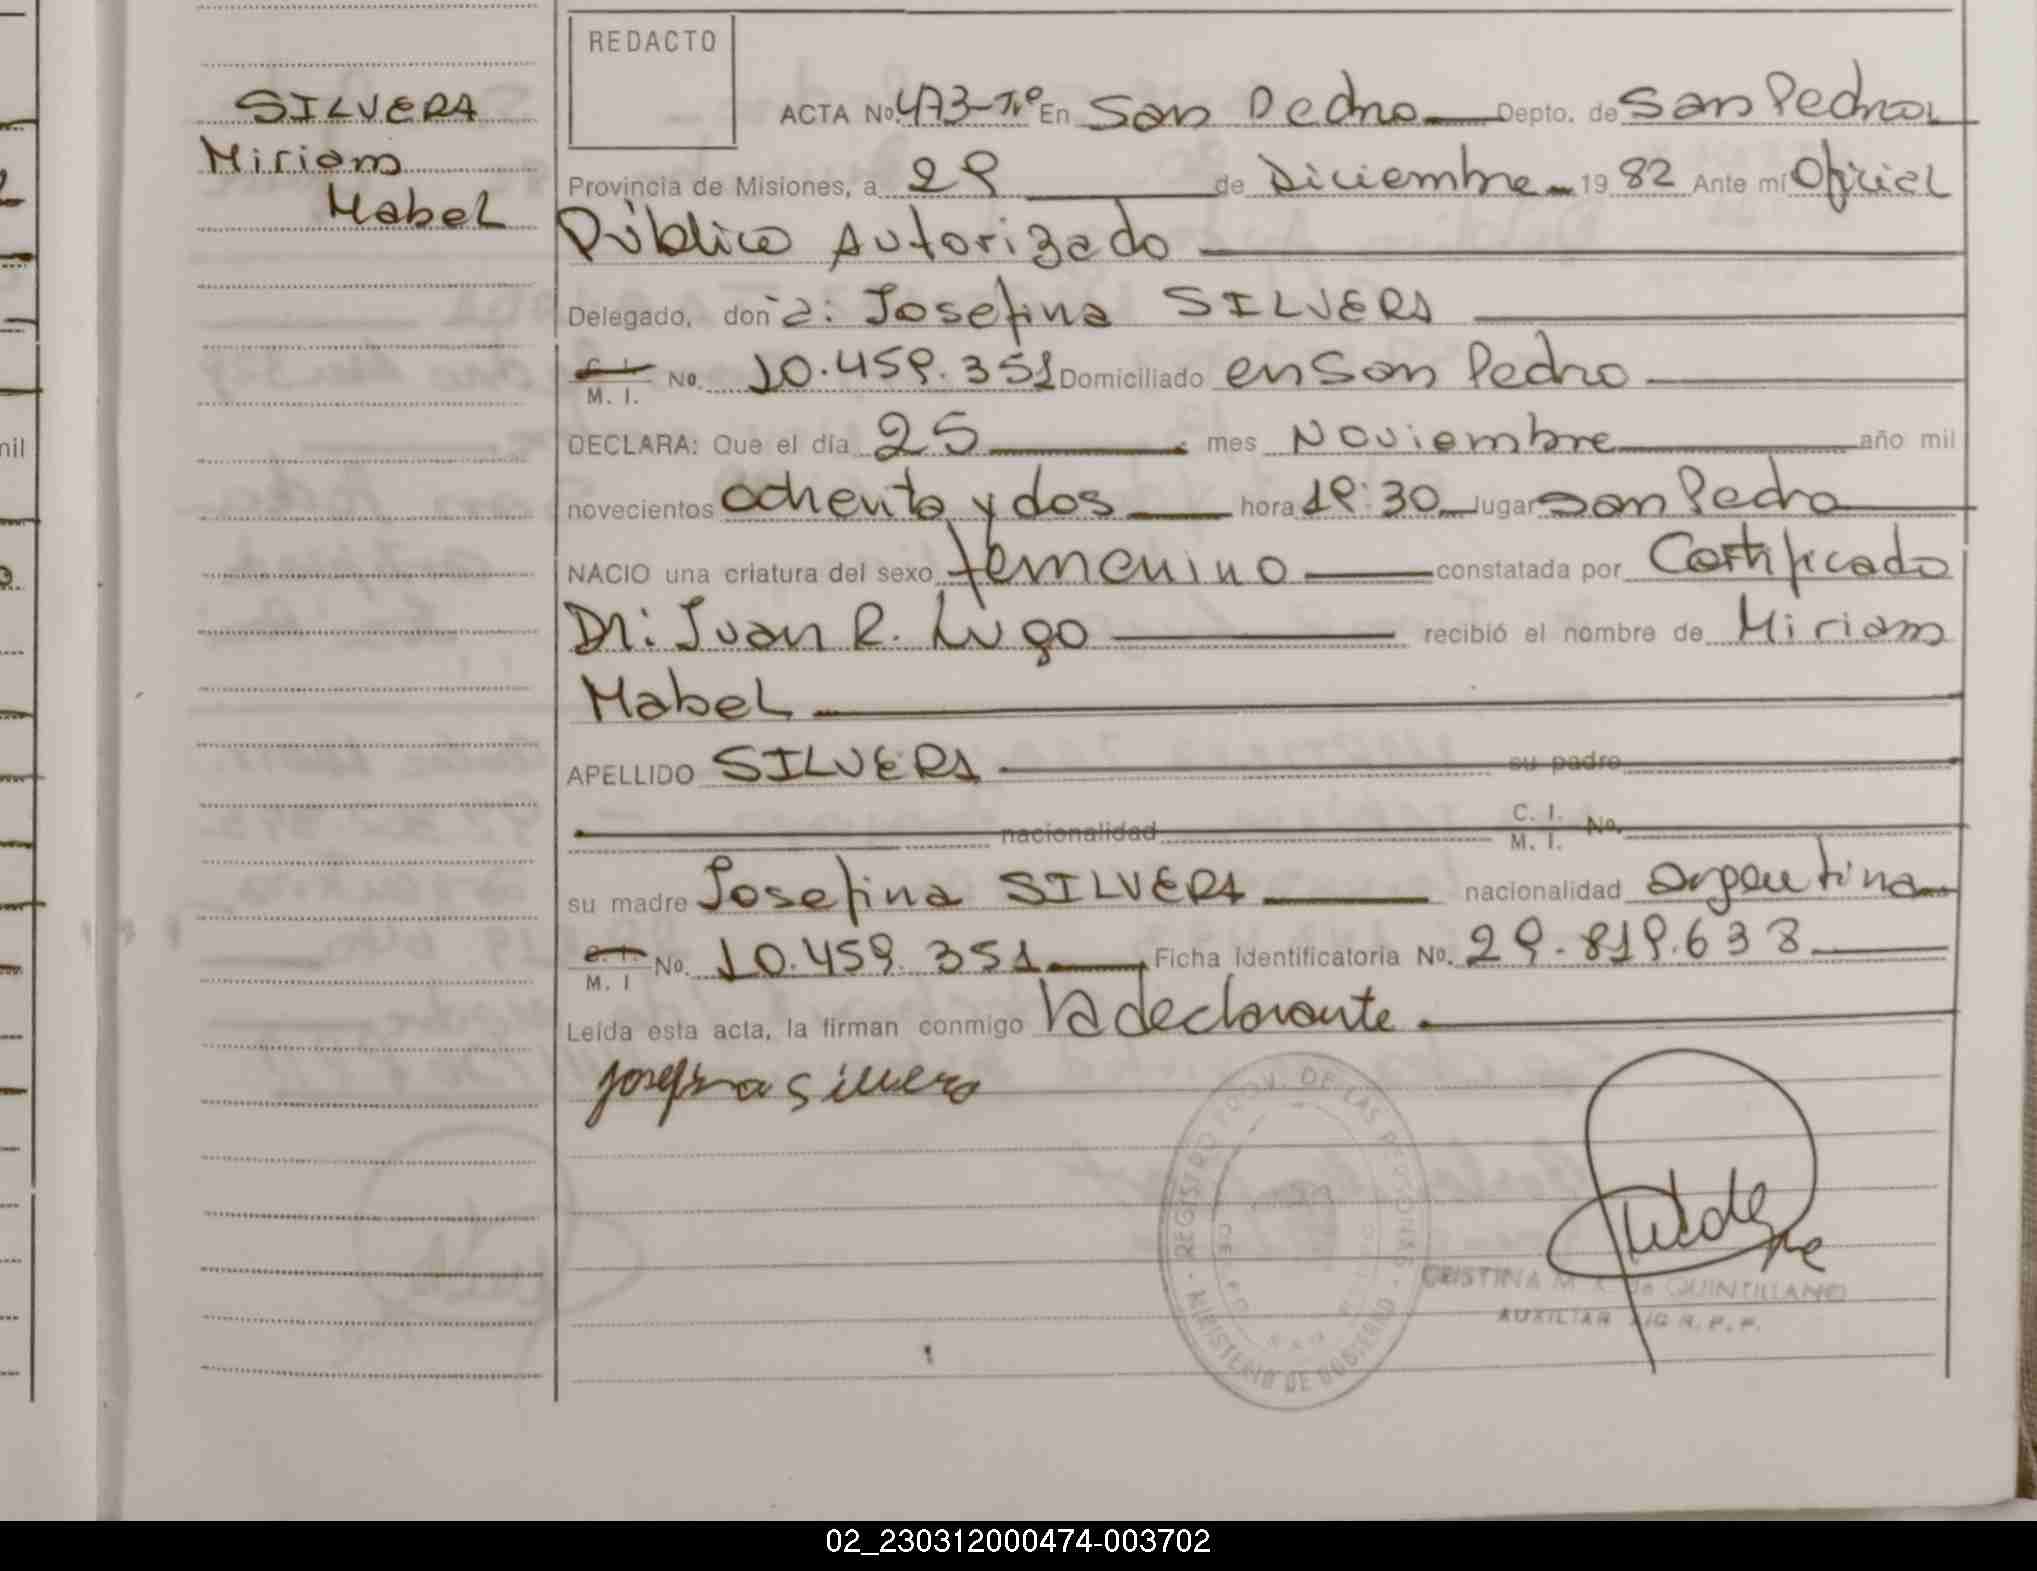 REDACTO
SILVERA
Miriam
Mabel
ACTA No. 473-Tº En San Pedro Depto. de San Pedro
Provincia de Misiones, a 29 de Diciembre 19 82 Ante mí Oficial
Público Autorizado
Delegado, don a: Josefina SILVERA
C. I.
M. I. No. 10.459.351 Domiciliado en San Pedro
DECLARA: Que el día 25 mes Noviembre año mil
novecientos ochenta y dos hora 19:30 lugar San Pedro
NACIO una criatura del sexo femenino constatada por Certificado
Dr: Juan R. Lugo recibió el nombre de Miriam
Mabel
APELLIDO SILVERA su padre
nacionalidad C. I. No.
M. I.
su madre Josefina SILVERA nacionalidad argentina
C. I.
M. I No. 10.459.351 Ficha identificatoria No. 29.819.638
Leída esta acta, la firman conmigo la declarante
Josefina Silvera
REGISTRO PROV. DE LAS PERSONAS
MINISTERIO DE GOBIERNO
CRISTINA M. de QUINTILLANO
AUXILIAR R. P. P.
mil
02_230312000474-003702